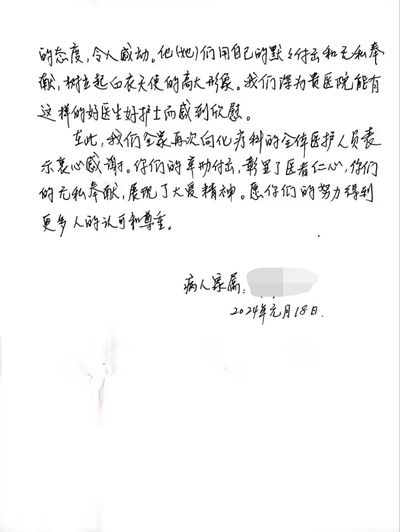 的态度，令人感动。他(她)们用自己的默々付出和无私奉
献，树立起白衣天使的高大形象。我们深为贵医院能有
这样的好医生好护士而感到欣慰。
在此，我们全家再次向化疗科的全体医护人员表
示衷心感谢。你们的辛勤付出，彰显了医者仁心，你们
的无私奉献，展现了大爱精神。愿你们的努力得到
更多人的认可和尊重。
病人家属：
2024年元月18日.